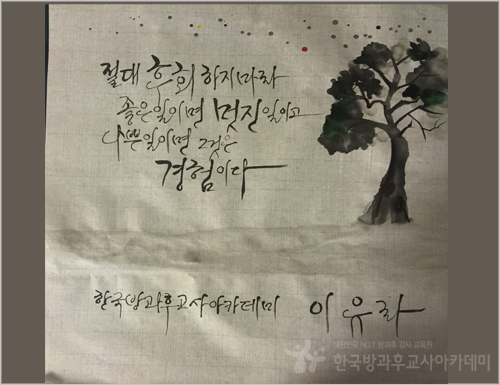 절대 후회 하지마라
좋은일이면 멋진일이고
나쁜일이면 그것은
경험이다
한국방과후교사아카데미 이유라
대한민국 NO.1 방과후 강사 교육원
한국방과후교사아카데미